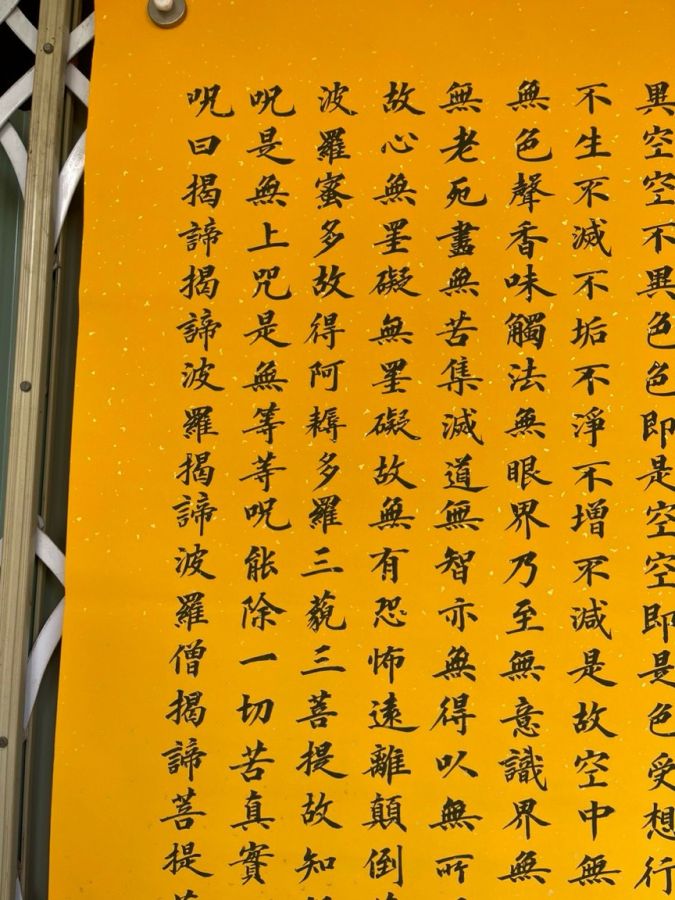 異空空不異色色即是空空即是色受想行
不生不滅不垢不淨不增不減是故空中無
無色聲香味觸法無眼界乃至無意識界無
無老死盡無苦集滅道無智亦無得以無所
故心無罣礙無罣礙故無有恐怖遠離顛倒
波羅蜜多故得阿耨多羅三藐三菩提故知
呪是無上咒是無等等呪能除一切苦真實
呪曰揭諦揭諦波羅揭諦波羅僧揭諦菩提